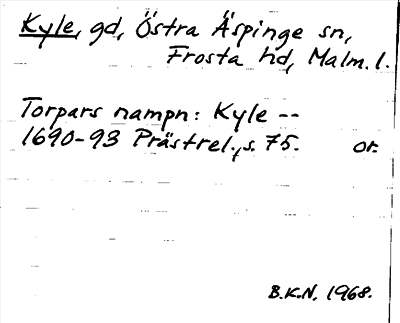 Kyle, gd, Östra Äspinge sn,
Frosta hd, Malm. l.
Torpars nampn: Kyle --
1690-93 Prästrel., s. 75. or.
B.K.N. 1968.